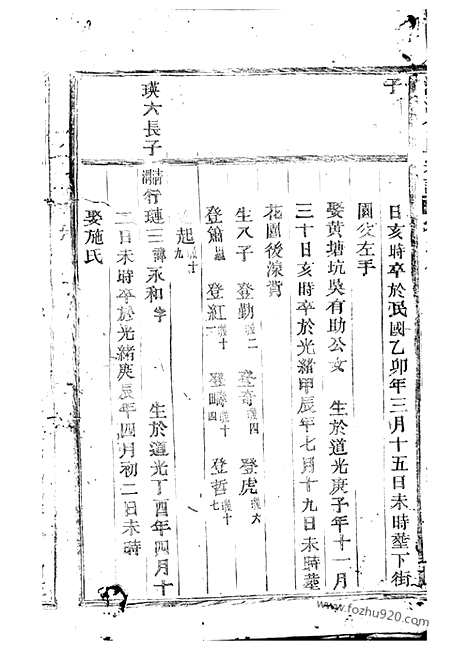 子
日亥時卒於民國乙卯年三月十五日未時塟下街
園公左手
娶黃塘坑吳有助公女 生於道光庚子年十一月
三十日亥時卒於光緒甲辰年七月十九日未時塟
花園後深背
生八子 登勤義二 登奇義四 登虎義六
登簫 登紅義十 登疇義十四 登哲義十七
起義十九
瑛六長子
行璉三諱永和字 生於道光丁酉年四月十
二日未時卒於光緒庚辰年四月初二日未時
娶施氏
www.fozhu920.com